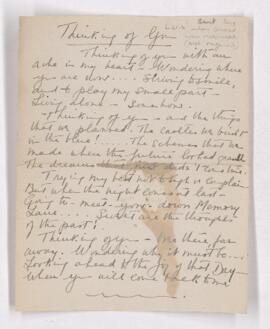 Thinking of You
Thinking of you with an
ache in my heart. Wondering where
you are now.... Striving to smile,
and to play my small part -
Living alone - Somehow.
Thinking of you - and the things
that we planned. The castles we built
in the blue!.... The schemes that we
made when the future looked grand
The dreams that didn't come true.
Trying my best not to sigh or complain
But when the night comes at last -
Going to meet you down Memory
Lane.... Such are the thoughts
of the past!
Thinking of you - Me there far
away. Wondering why it must be...
Looking ahead to the Joy of that Day
When you will come back to me